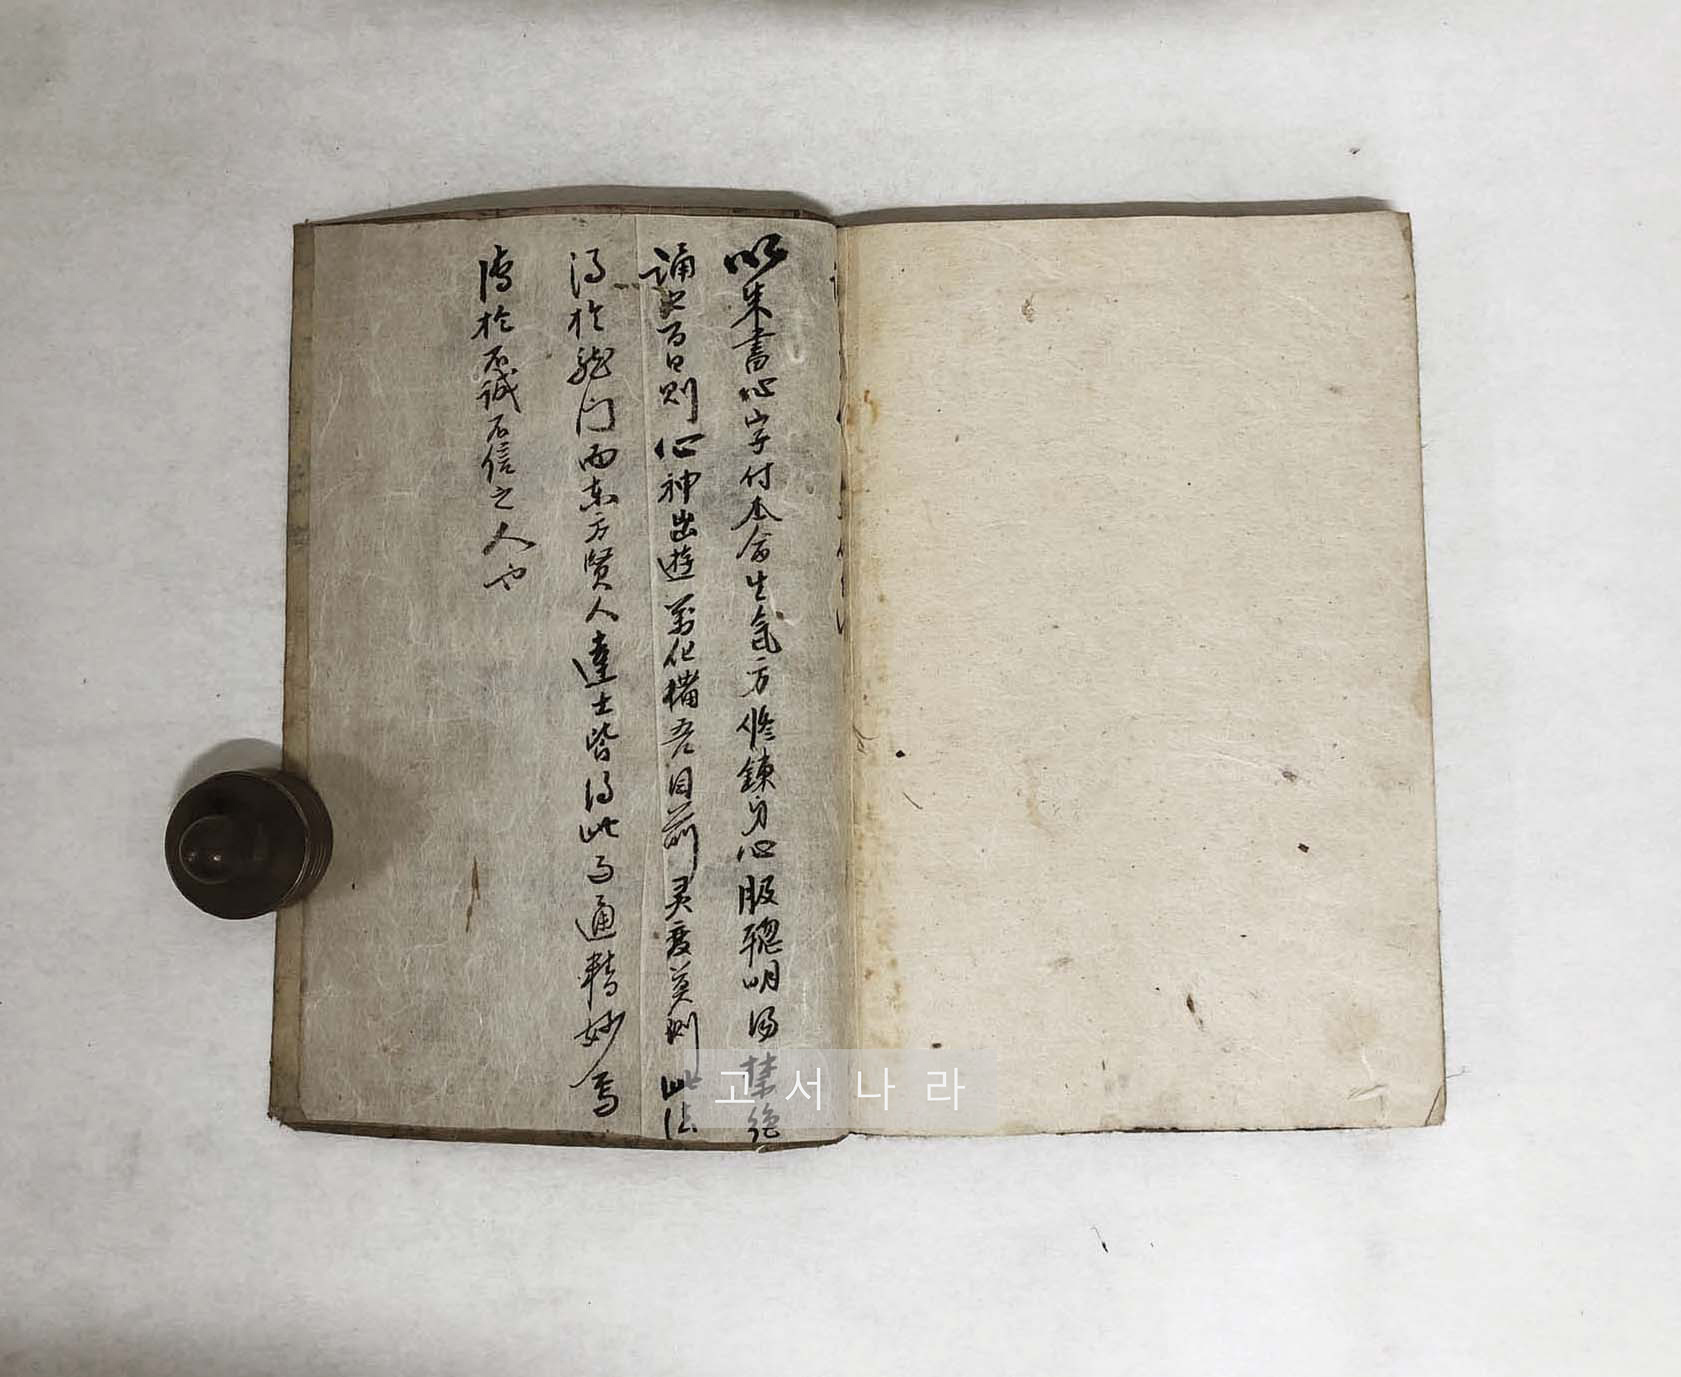 以朱書心字付本命生氣方修鍊身心服聰明湯禁絶
誦之百日則心神出遊萬化備吾目前灵度莫測此法
得於龍门而東方賢人達士皆得此而通精妙焉
傳於不誠不信之人也
고서나라